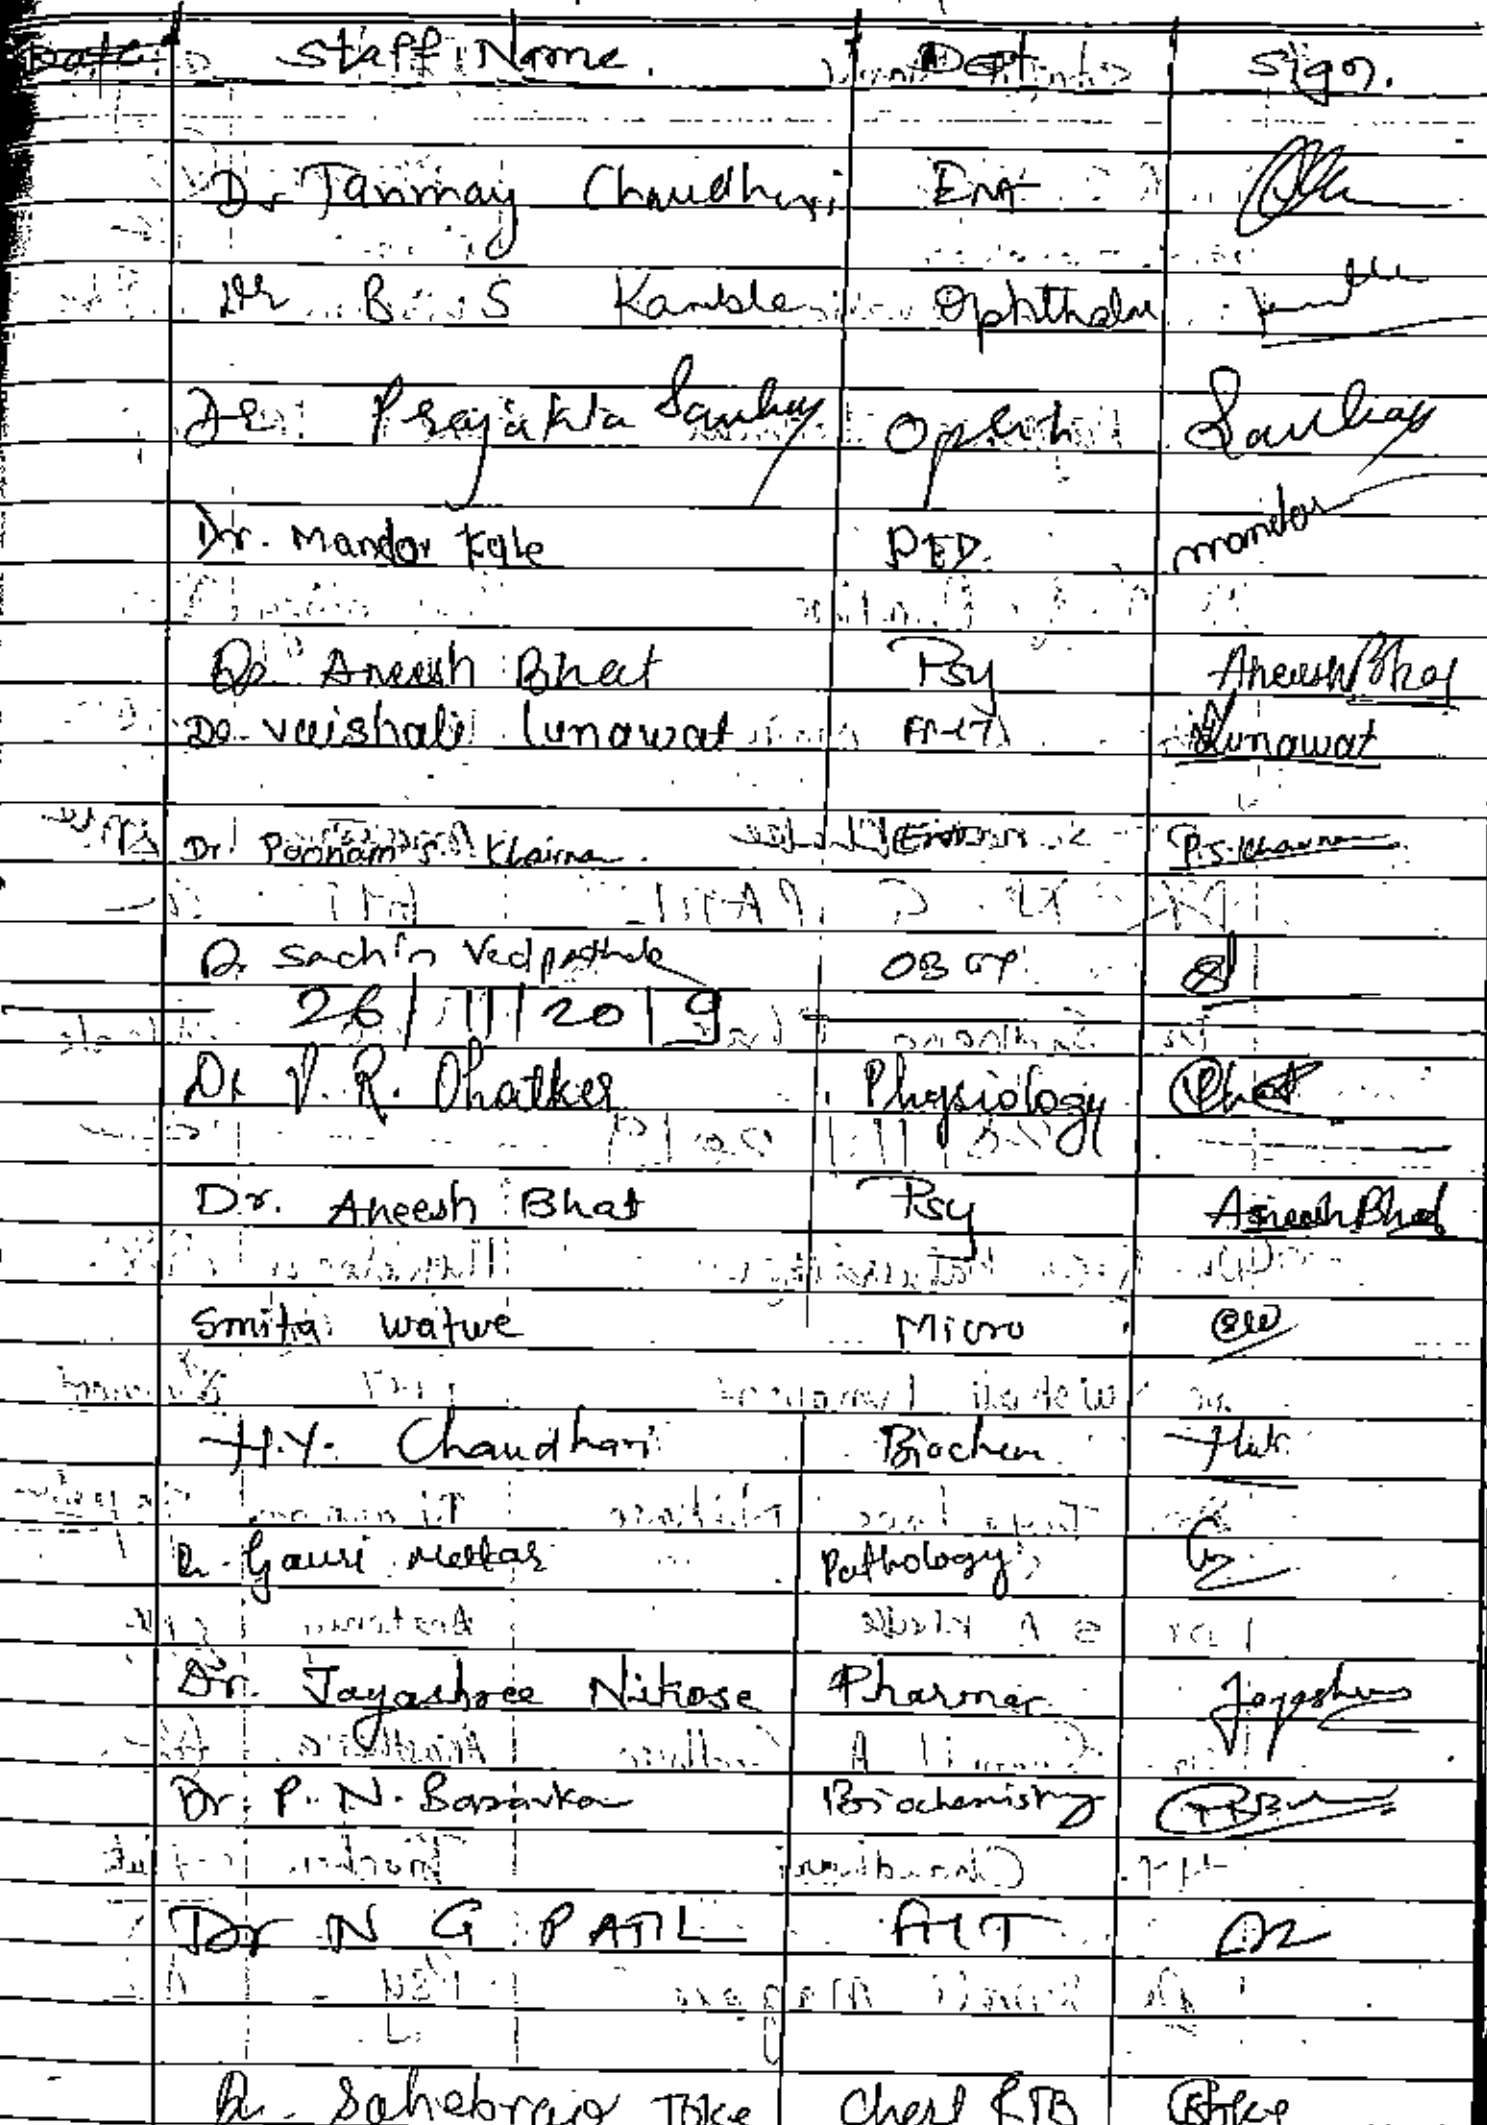 Date Staff Name. Dept Sign.
Dr Tanmay Chaudhari ENT
Dr B S Kamble Ophthalm
Dr. Prajakta Sankay Ophth Sankay
Dr. Mandar Kale PED. mandar
Dr. Aneesh Bhat Psy Aneesh Bhat
Dr. Vaishali Lunawat FMT Lunawat
Dr. Poonam S. Khairna. P.S. Khairna
Dr Sachin Vedpathak OBGY
26/11/2019
Dr V. R. Dhatkar Physiology Dhat
Dr. Aneesh Bhat Psy Aneesh Bhat
Smita Watwe Micro SW
H.Y. Chaudhari Biochem
Dr. Gauri Metkar Pathology
Dr. Jayashree Nikose Pharmac Jayashree
Dr. P. N. Basavka Biochemistry
Dr N G PATIL
Dr. Sahebrao Toke Chest & TB Toke